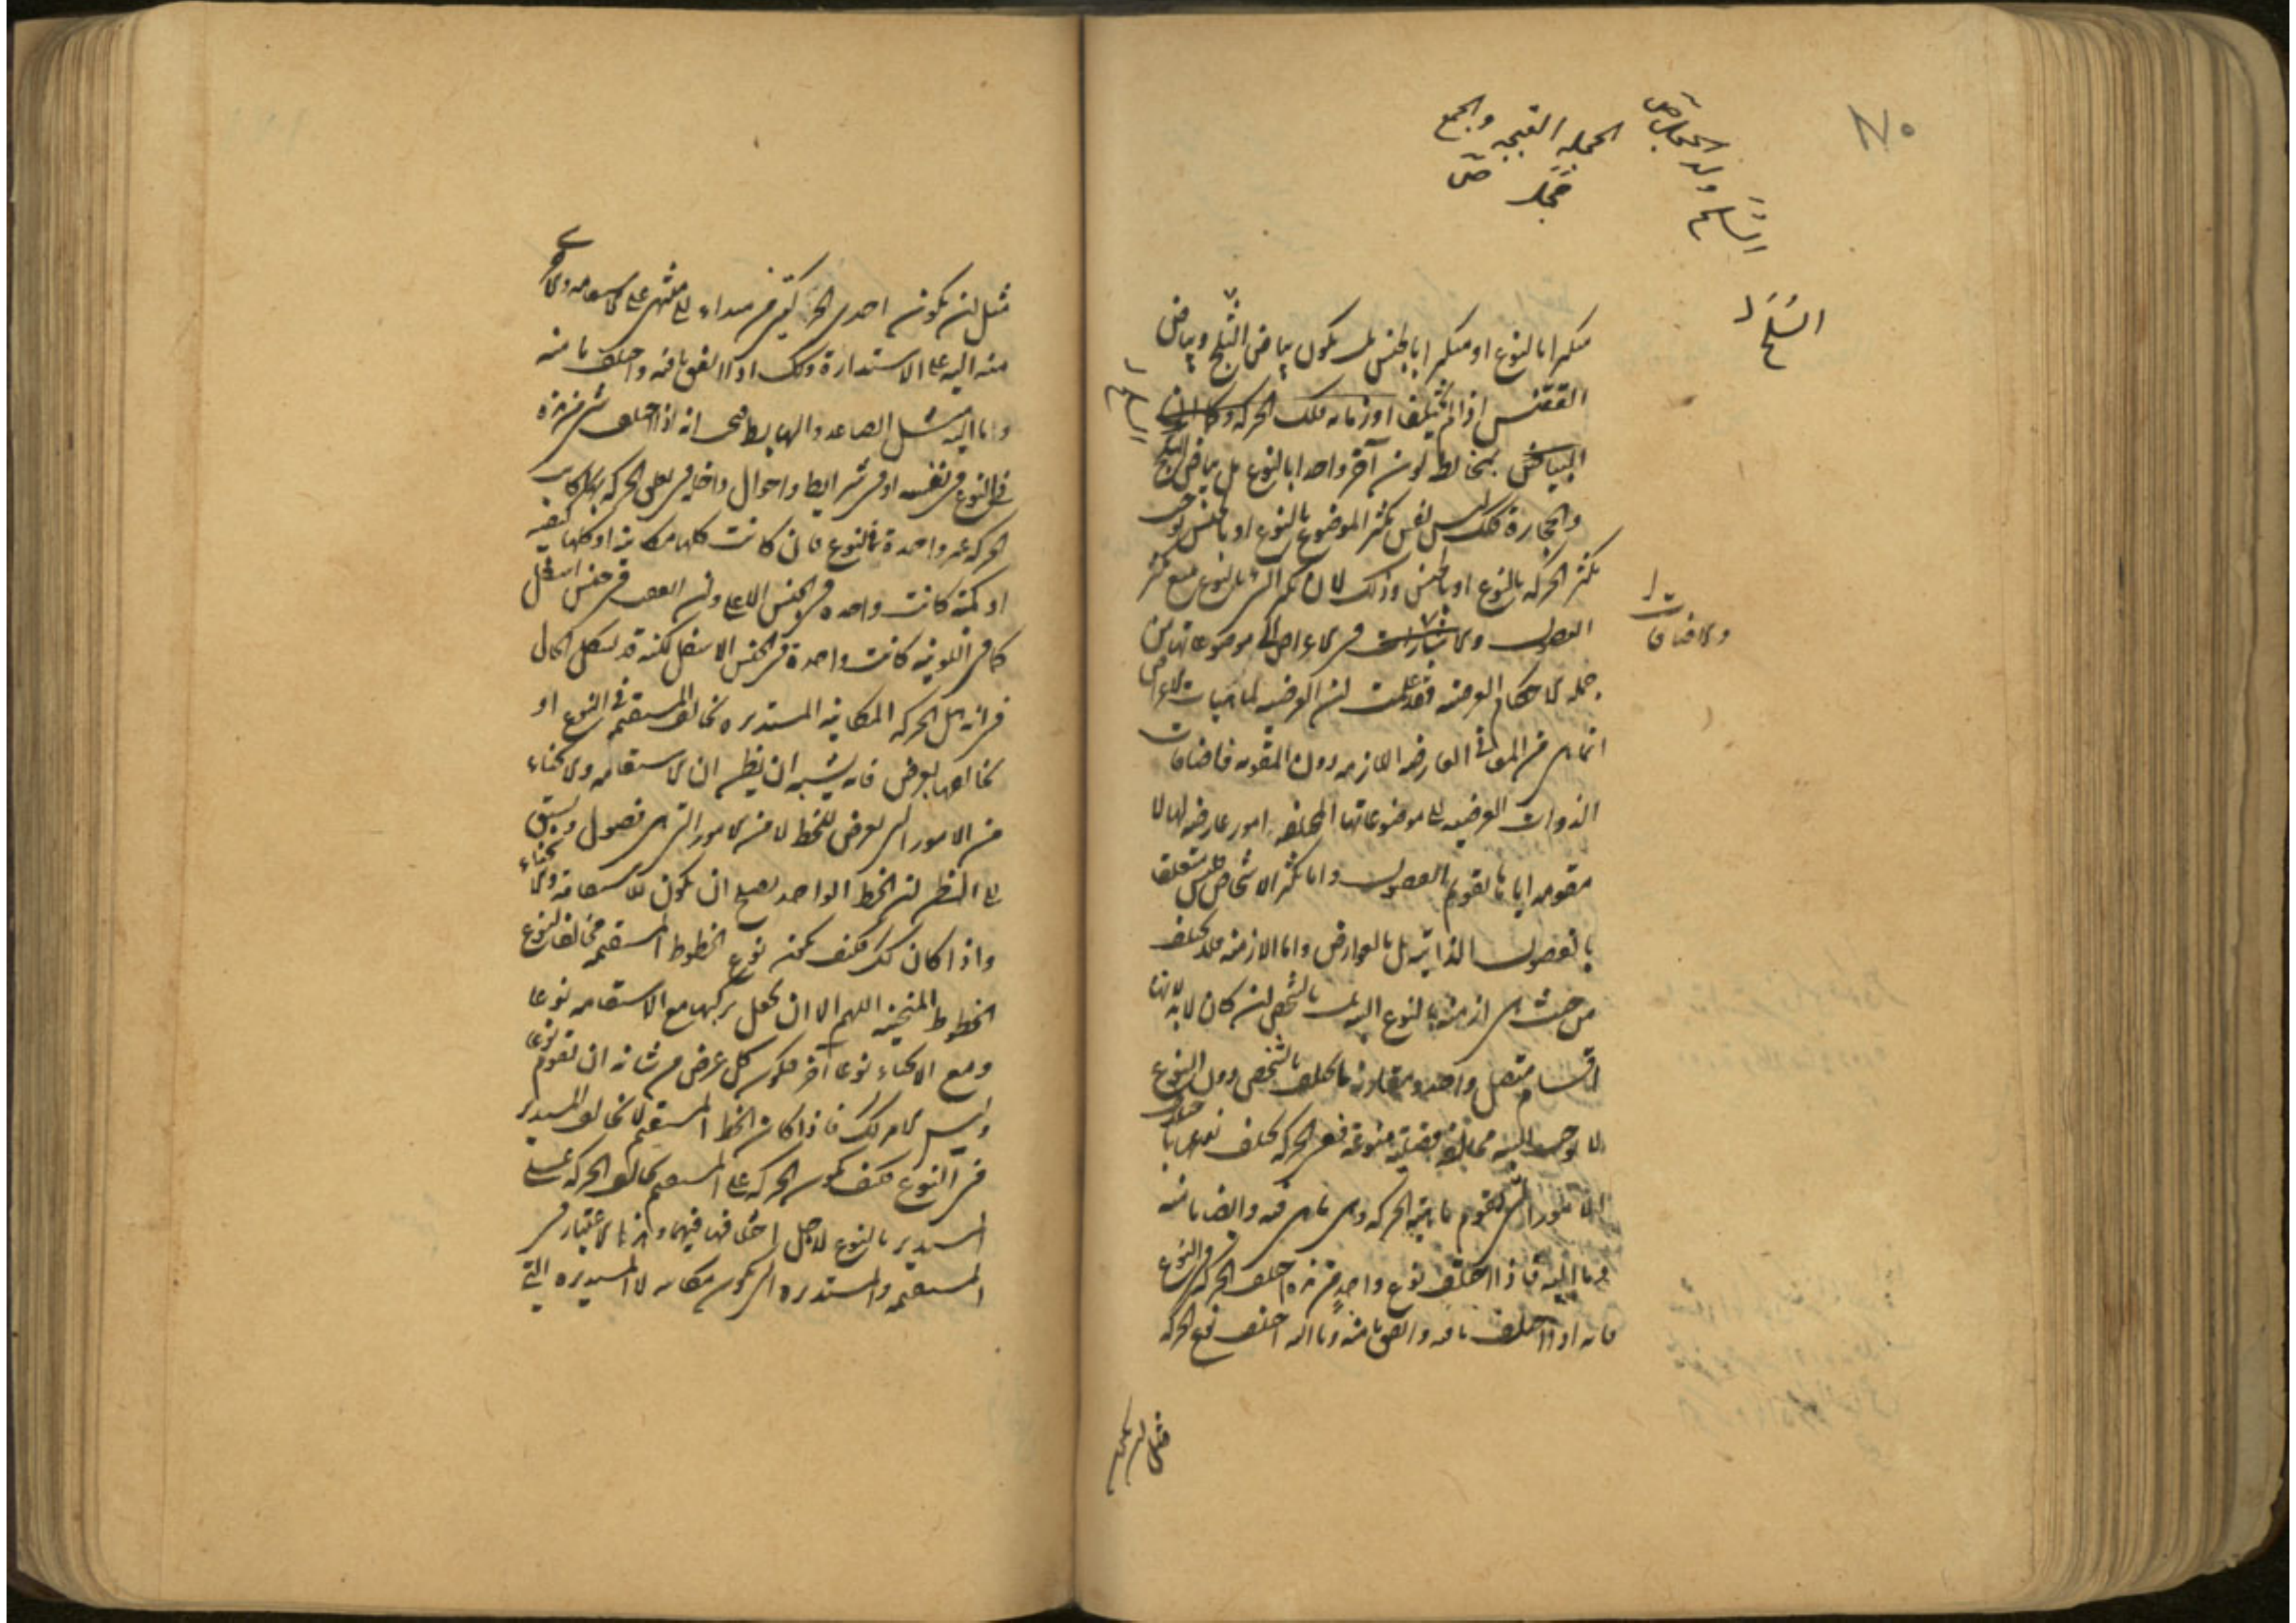 السلك ولد الحجل ص
الحجلة القبجة والجمع
حجل ص
السلك
متكثرا بالنوع او متكثرا بالجنس بل يكون بياض الثلج وبياض
الققنس اذا لم يختلف او زمانه تلك الحركة وكان
البياض بمخالطة لون آخر واحدا بالنوع بل بياض الثلج
والحجارة كذلك ليس نفس تكثر الموضوع بالنوع او بالجنس يوجب
تكثر الحركة بالنوع او بالجنس وذلك لان تكثر النوع يتبع تكثر
الفصول والاضافات
جملة الاحكام العرضية فقد علمت ان العرضية لماهيات الاعراض
انما هي من المعاني العارضة اللازمة دون المقومة فاضافات
الذوات العرضية الى موضوعاتها المختلفة امور عارضة لها لا
مقومة اياها تقويم الفصول واما تكثر الاشخاص فليس متعلقا
بالفصول الذاتية بل بالعوارض واما الازمنة فلا تختلف
من حيث هي ازمنة بالنوع البتة بل بالشخص ان كان لا بد لانها
اقسام متصل واحد ومقارنة ما يختلف بالشخص دون النوع
لا يوجب البتة مخالفة منوعة فنوع الحركة تختلف نوعيا باختلاف
الامور التي تقوم ماهية الحركة وهي ما هي فيه وايضا ما منه
وما اليه فاذا اختلف نوع واحد من هذه اختلف الحركة في النوع
فانه اذا اختلف ما فيه واتفق ما منه وما اليه اختلف نوع الحركة
مثل ان يكون
مثل ان يكون احدى الحركتين من مبداء الى منتهى على الاستقامة والاخرى
منه اليه على الاستدارة وكذلك اذا اتفق ما فيه واختلف ما منه
وما اليه مثل الصاعد والهابط فنحن انه اذا اختلف شئ من هذه
في النوع في نفسه او في شرايط واحوال داخلة في تعلق الحركة بها كانت
الحركة غير واحدة بالنوع فان كانت كلها مكانية او كلها كيفية
او كمية كانت واحدة في الجنس الاعلى وان اتفقت في جنس اسفل
كما في اللونية كانت واحدة في الجنس الاسفل لكنه قد يشكل الحال
في انه هل الحركة المكانية المستديرة تخالف المستقيمة في النوع او
تخالفها بعرض فانه يشبه ان يظن ان الاستقامة والانحناء
من الامور التي تعرض للخط لا من الامور التي هي فصول ويسبق
الى الظن ان الخط الواحد يصلح ان يكون للاستقامة والانحناء
واذا كان كذلك فكيف يمكن نوع الخطوط المستقيمة مخالفا لنوع
الخطوط المنحنية اللهم الا ان يجعل تركيبها مع الاستقامة نوعا
ومع الانحناء نوعا آخر فيكون كل عرض من شانه ان تقوم نوعا
وليس الامر كذلك فاذا كان الخط المستقيم لا يخالف المستدير
في النوع فكيف يكون الحركة على المستقيم تخالف الحركة على
المستدير بالنوع لاجل اختلافهما فيهما وانما الاعتبار في
المستقيمة والمستديرة التي يكون مكانية لا المستديرة التي